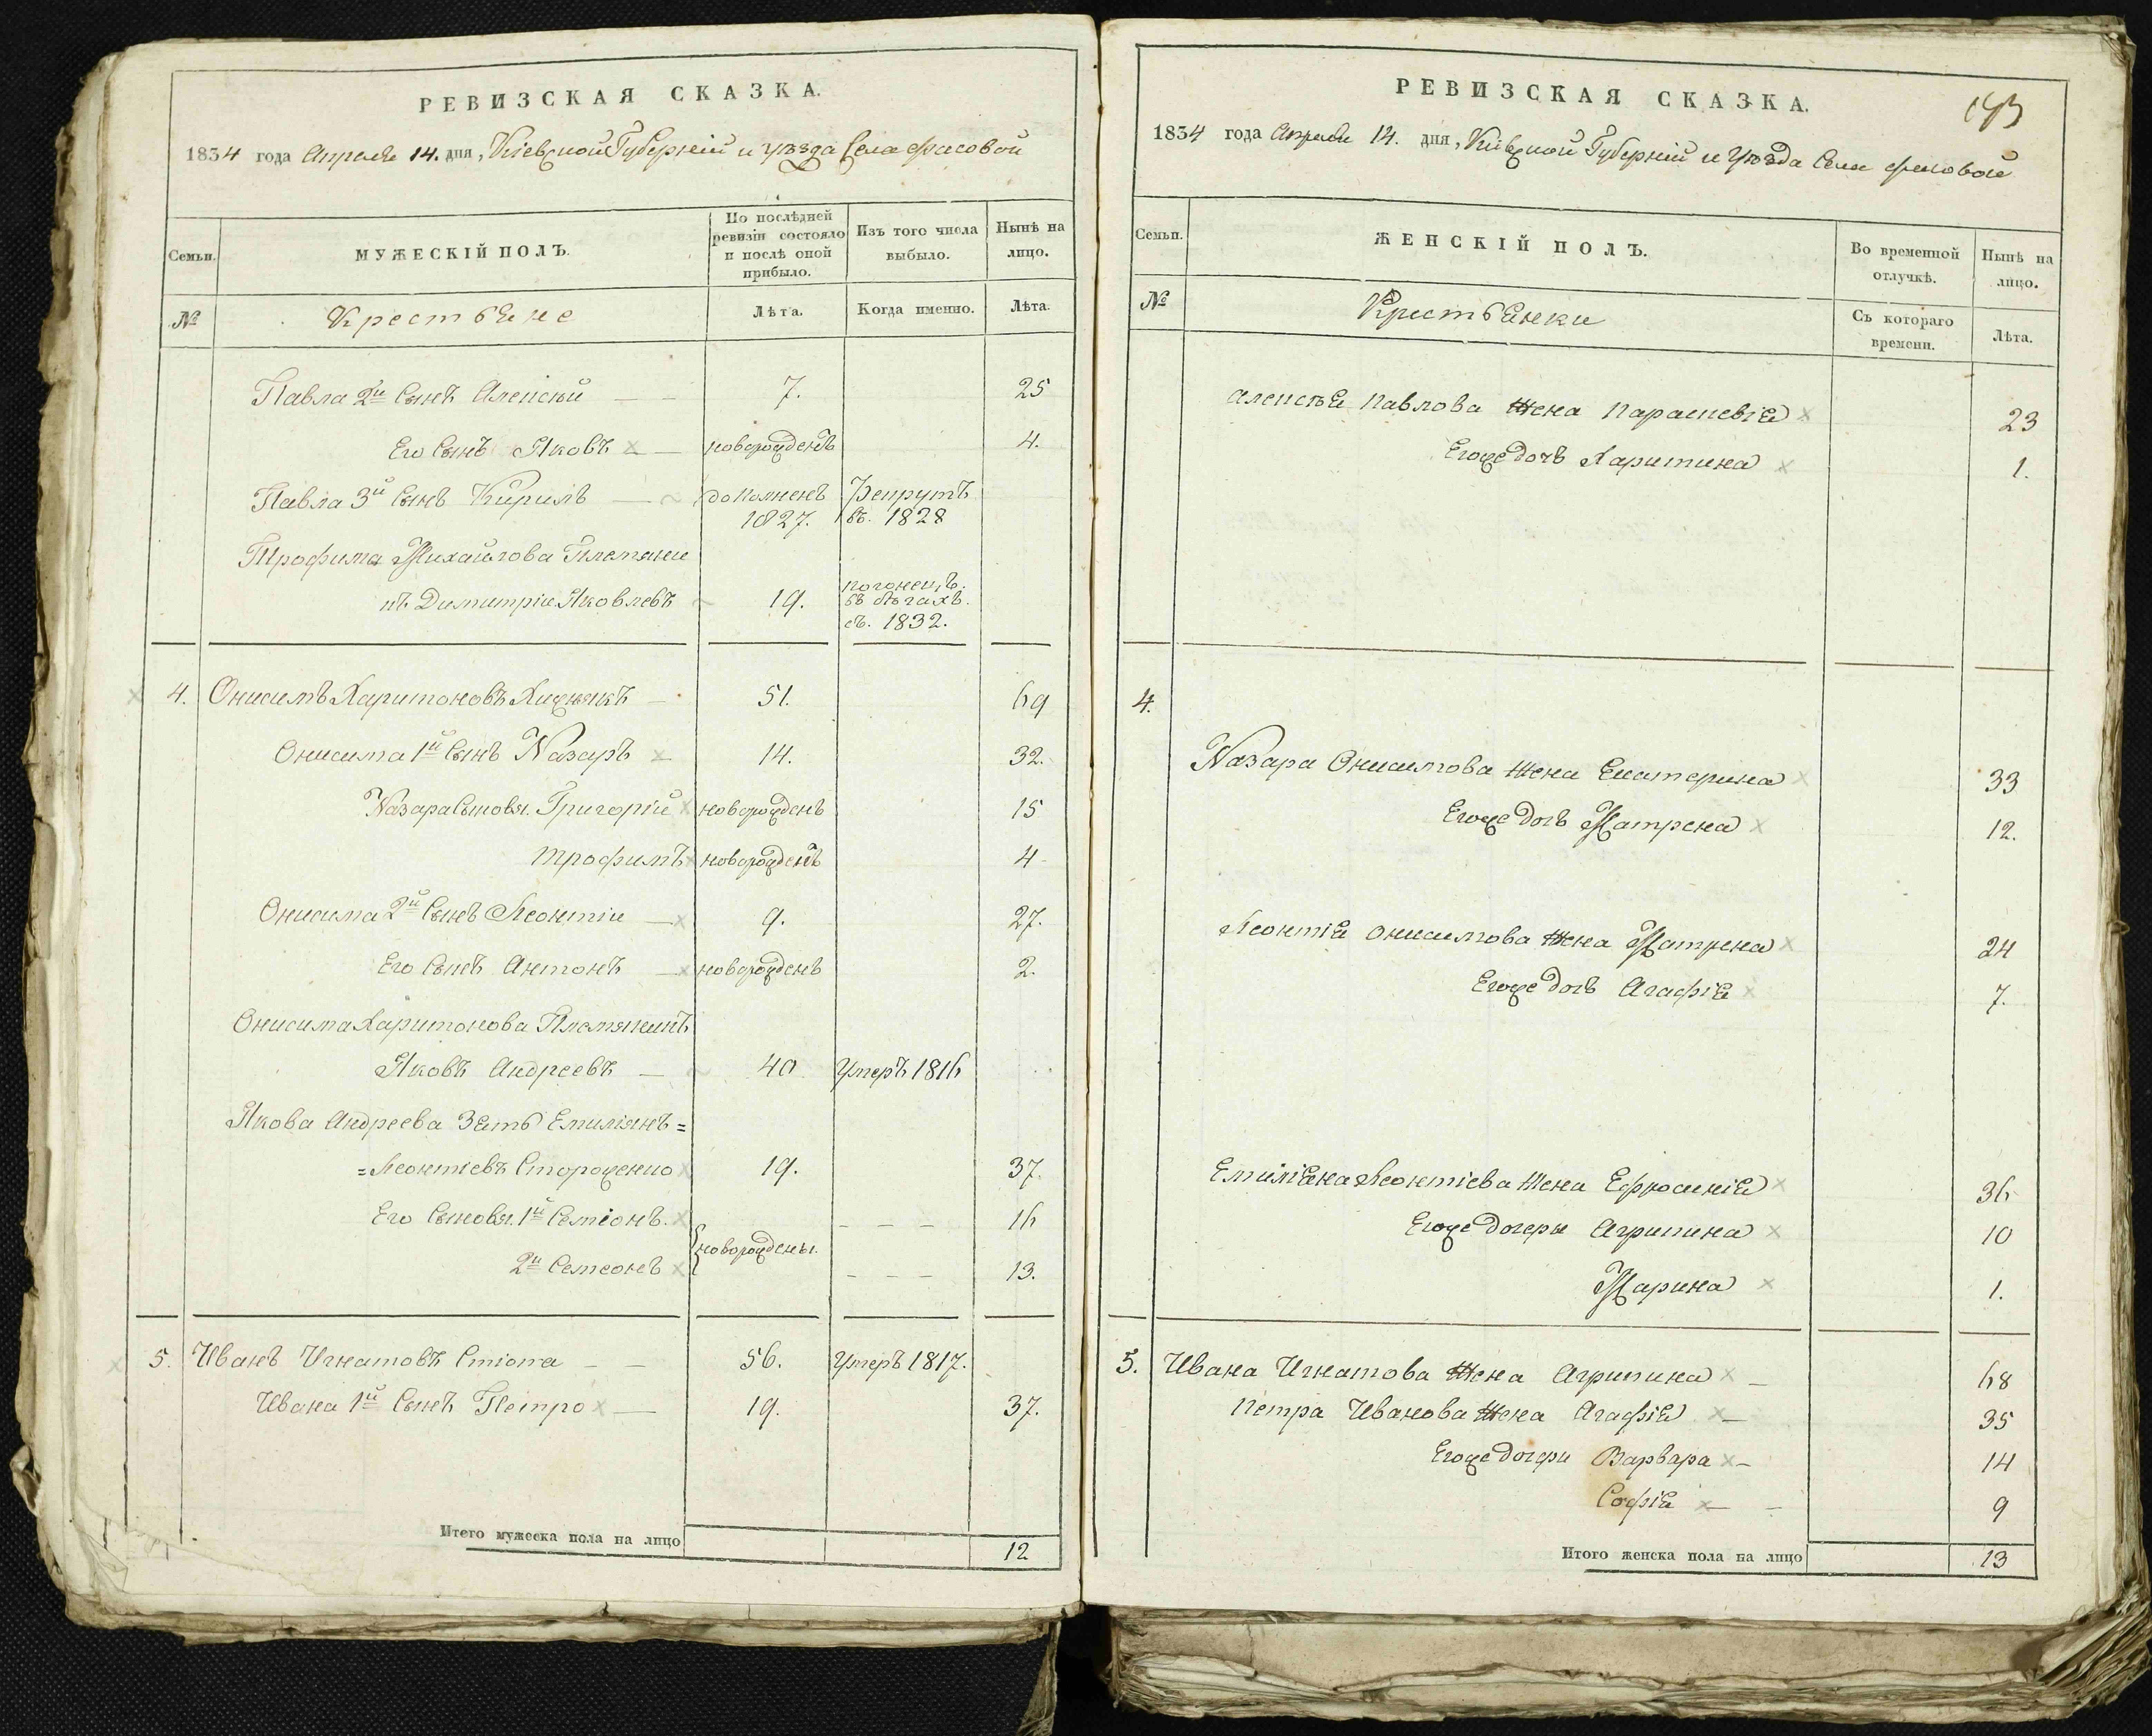 РЕВИЗСКАЯ СКАЗКА.
1834 года Апреля 14. дня, Кіевской Губерніи и уѣзда Села Фасовой
Семьи.
МУЖЕСКІЙ ПОЛЪ.
По послѣдней ревизіи состояло и послѣ оной прибыло.
Изъ того числа выбыло.
Нынѣ на лицо.
№
Крестьяне
Лѣта.
Когда именно.
Лѣта.
Павла 2й Сынъ Алексѣй — — 7. 25
Его Сынъ Яковъ — новорожденъ 4.
Павла 3й Сынъ Кирилъ — дополненъ Рекрутъ
1827. въ. 1828
Трофима Михайлова Племянни
къ Димитріи Яковлевъ 19. погонецъ.
въ бѣгахъ.
съ. 1832.
4. Онисимъ Харитоновъ — 51. 69
Онисима 1й Сынъ Назаръ 14. 32.
Назара Сыновя. Григорій новорожденъ 15
Трофимъ новорожденъ 4
Онисима 2й Сынъ Леонтіи — 9. 27.
Его Сынъ Антонъ — новорожденъ 2.
Онисима Харитонова Племянникъ
Яковъ Андреевъ — 40 Умеръ 1816
Якова Андреева Зять Емиліянъ =
= Леонтіевъ Стороженко 19. 37.
Его Сыновя. 1й Семіонъ. — — — 16
новорождены.
2й Семеонъ — — — 13.
5. Иванъ Игнатовъ Стіопа — — 56. Умеръ 1817.
Ивана 1й Сынъ Петро — 19. 37.
Итого мужеска пола на лицо 12
РЕВИЗСКАЯ СКАЗКА.
193
1834 года Апреля 14. дня, Кіевской Губерніи и Уѣзда Села Фасовой
Семьи.
ЖЕНСКІЙ ПОЛЪ.
Во временной отлучкѣ.
Нынѣ на лицо.
№
Крестьянки
Съ котораго времени.
Лѣта.
Алексѣя Павлова Жена Параскевія 23
Егоже дочь Харитина 1.
4.
Назара Онисимова Жена Екатерина 33
Егоже дочь Матрена 12.
Леонтія Онисимова Жена Матрена 24
Егоже дочь Агафія 7.
Емиліяна Леонтіева Жена Ефросинія 36
Егоже дочеры Агрипина 10
Марина 1.
5. Ивана Игнатова Жена Агрипина — 68
Петра Иванова Жена Агафія — 35
Егоже дочери Варвара — 14
Софія — — 9
Итого женска пола на лицо 13